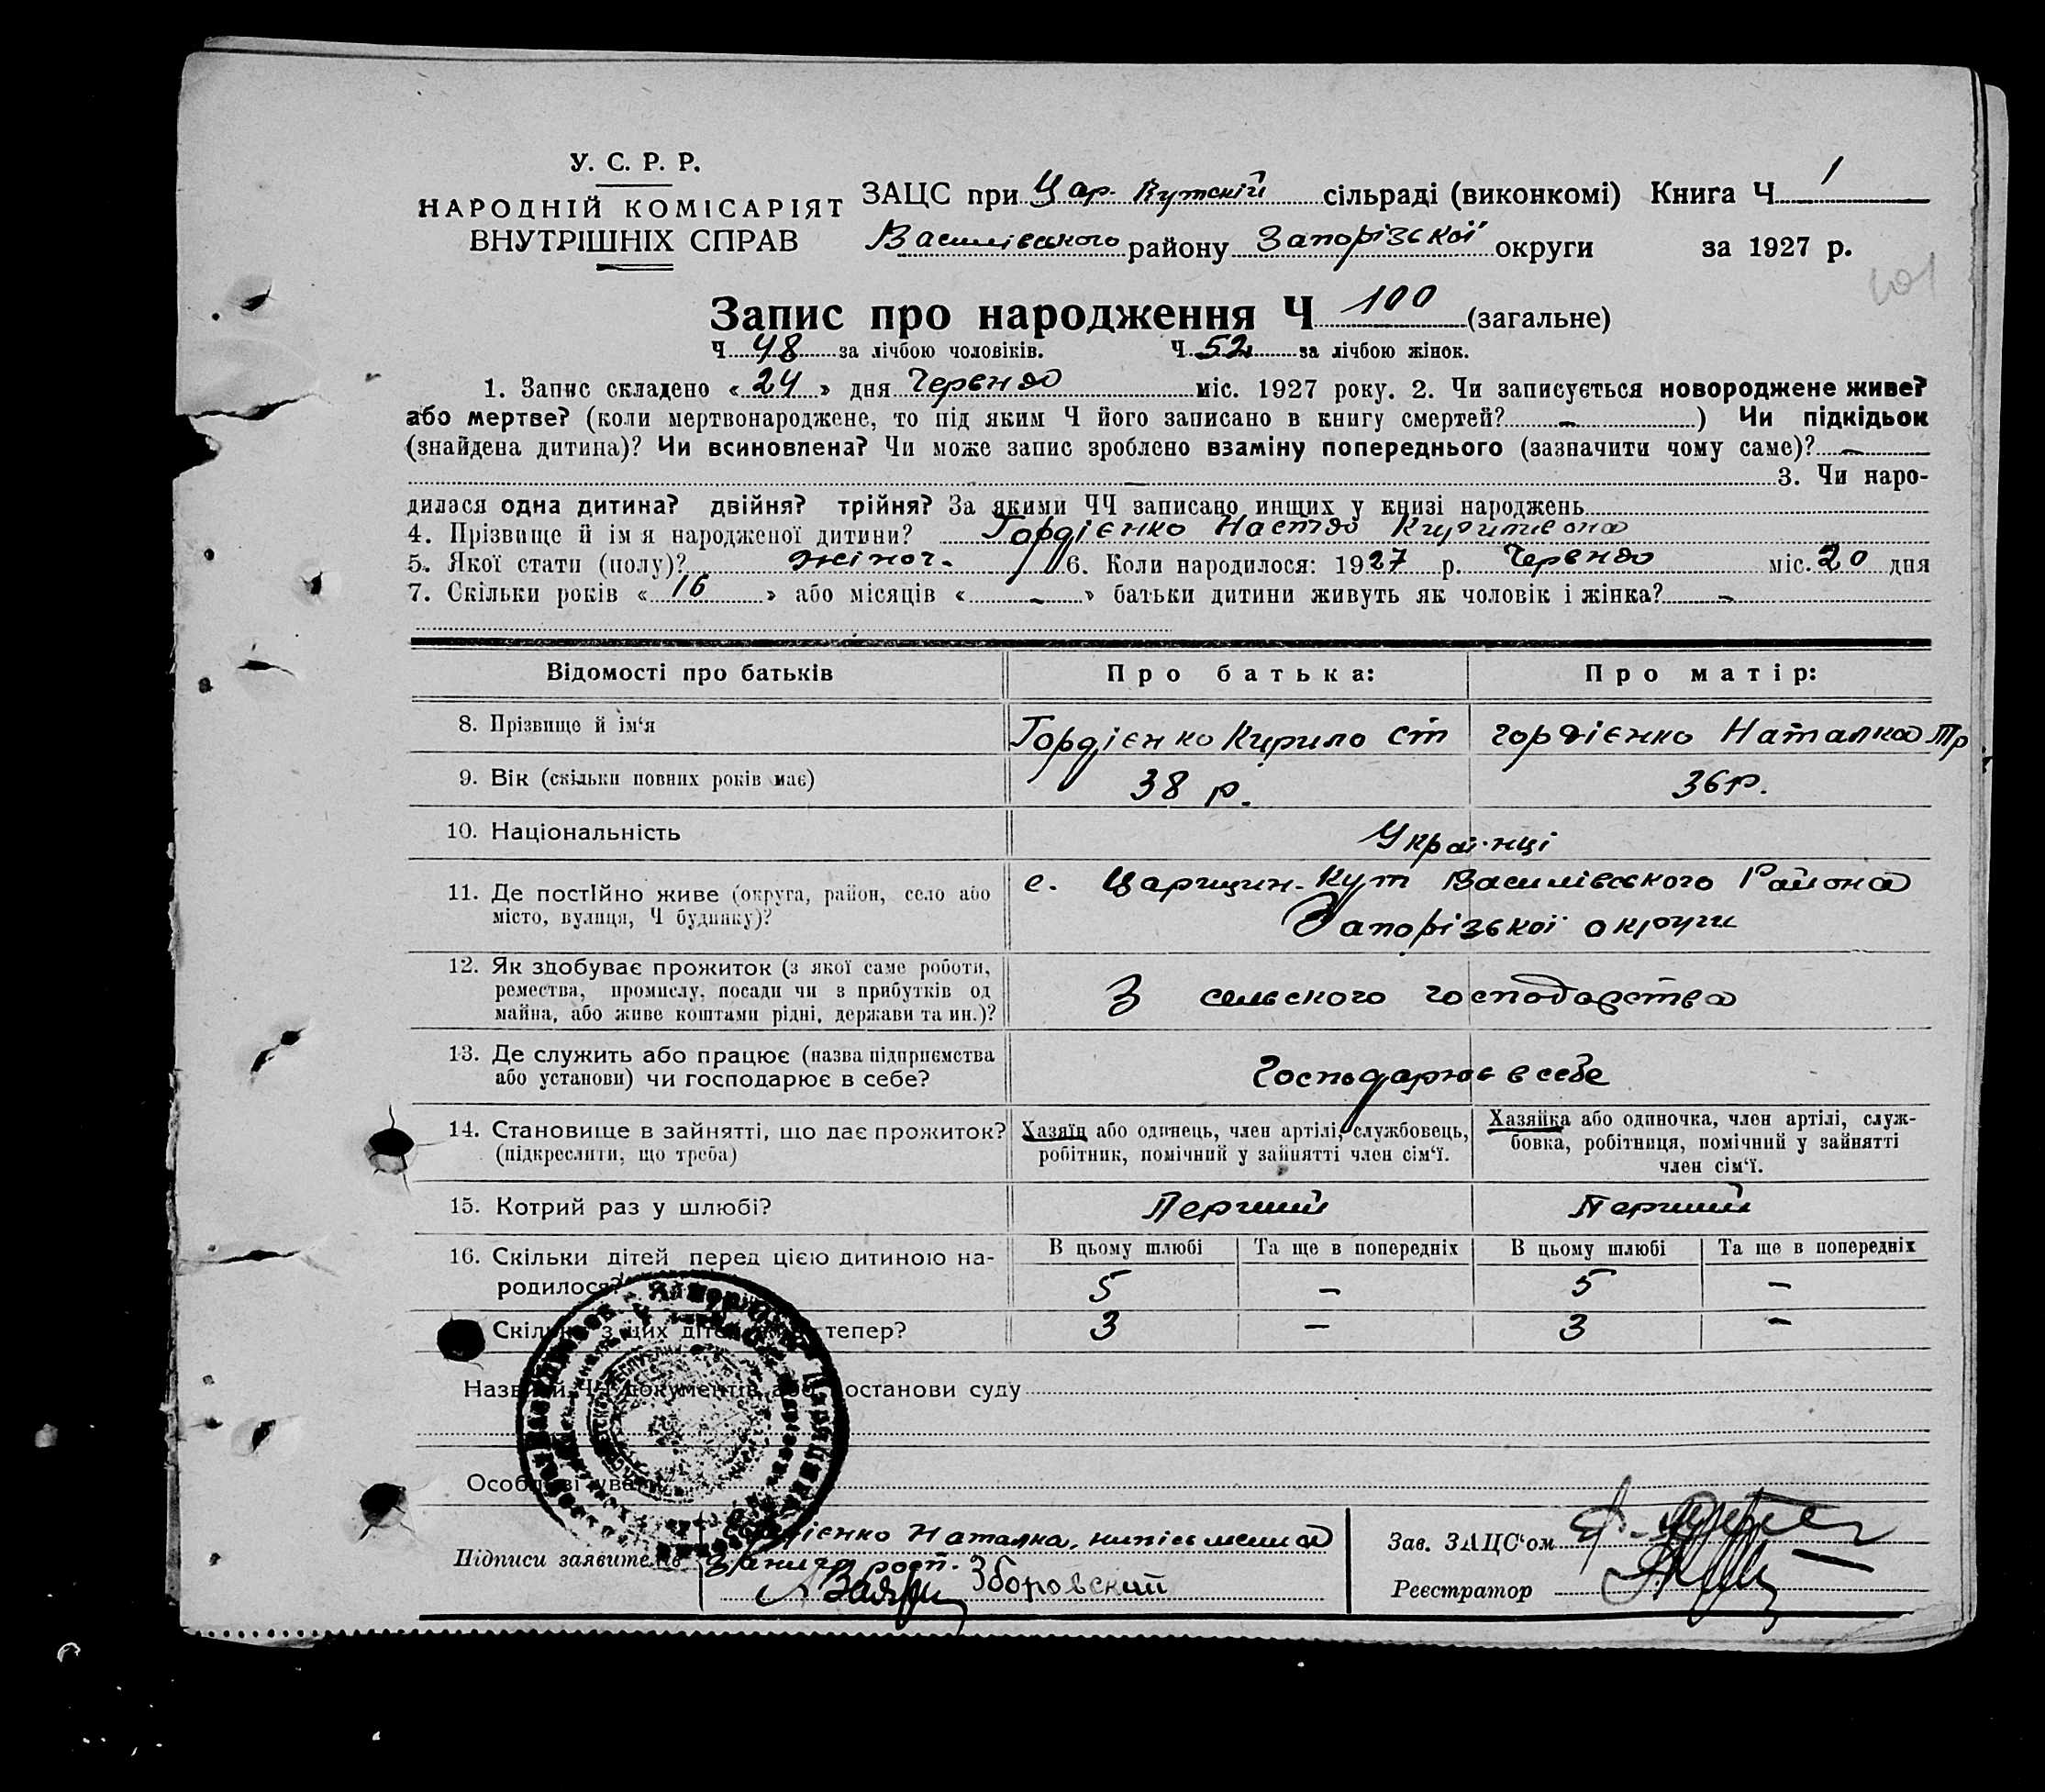 У. С. Р. Р.
НАРОДНІЙ КОМІСАРІЯТ
ВНУТРІШНІХ СПРАВ
ЗАЦС при Цар. Кутській сільраді (виконкомі) Книга Ч 1
Василівського району Запорізької округи за 1927 р.
101
Запис про народження Ч 100 (загальне)
Ч 48 за лічбою чоловіків. Ч 52 за лічбою жінок.
1. Запис складено « 24 » дня Червня міс. 1927 року. 2. Чи записується новороджене живе?
або мертве? (коли мертвонароджене, то під яким Ч його записано в книгу смертей? – ) Чи підкідьок
(знайдена дитина)? Чи всиновлена? Чи може запис зроблено взаміну попереднього (зазначити чому саме)? –
– 3. Чи наро-
дилася одна дитина? двійня? трійня? За якими ЧЧ записано инщих у книзі народжень
4. Прізвище й ім я народженої дитини? Гордієнко Настя Кирилівна
5. Якої стати (полу)? жіноч. 6. Коли народилося: 1927 р. Червня міс. 20 дня
7. Скільки років « 16 » або місяців « – » батьки дитини живуть як чоловік і жінка? –
Відомості про батьків Про батька: Про матір:
8. Прізвище й ім‘я Гордієнко Кирило Ст Гордієнко Наталка Тр
9. Вік (скільки повних років має) 38 р. 36 р.
10. Національність Українці
11. Де постійно живе (округа, район, село або
місто, вулиця, Ч будинку)?
с. Царицин-Кут Василівського Района
Запорізької округи
12. Як здобуває прожиток (з якої саме роботи,
ремества, промислу, посади чи з прибутків од
майна, або живе коштами рідні, держави та ин.)?
З сельского господарства
13. Де служить або працює (назва підприємства
або установи) чи господарює в себе?
Господарює в себе
14. Становище в зайнятті, що дає прожиток?
(підкреслити, що треба)
Хазяїн або одинець, член артілі, службовець,
робітник, помічний у зайнятті член сім‘ї.
Хазяйка або одиночка, член артілі, служ-
бовка, робітниця, помічний у зайнятті
член сім‘ї.
15. Котрий раз у шлюбі? Перший Перший
16. Скільки дітей перед цією дитиною на-
родилося?
В цьому шлюбі Та ще в попередніх В цьому шлюбі Та ще в попередніх
5 – 5 –
Скільки з цих дітей тепер? 3 – 3 –
Назва й ЧЧ документів або постанови суду
Особливі уваги
Підписи заявителів
Гордієнко Наталка, нипісьмена
Зборовский
Зав. ЗАЦС‘ом
Реєстратор